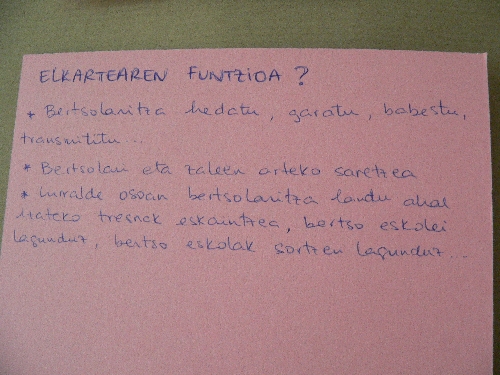 ELKARTEAREN FUNTZIOA?
* Bertsolaritza hedatu, garatu, babestu,
transmititu...
* Bertsolari eta zaleen arteko saretzea
* Lurralde osoan bertsolaritza landu ahal
izateko tresnak eskaintzea, bertso eskolei
lagunduz, bertso eskolak sortzen lagunduz...